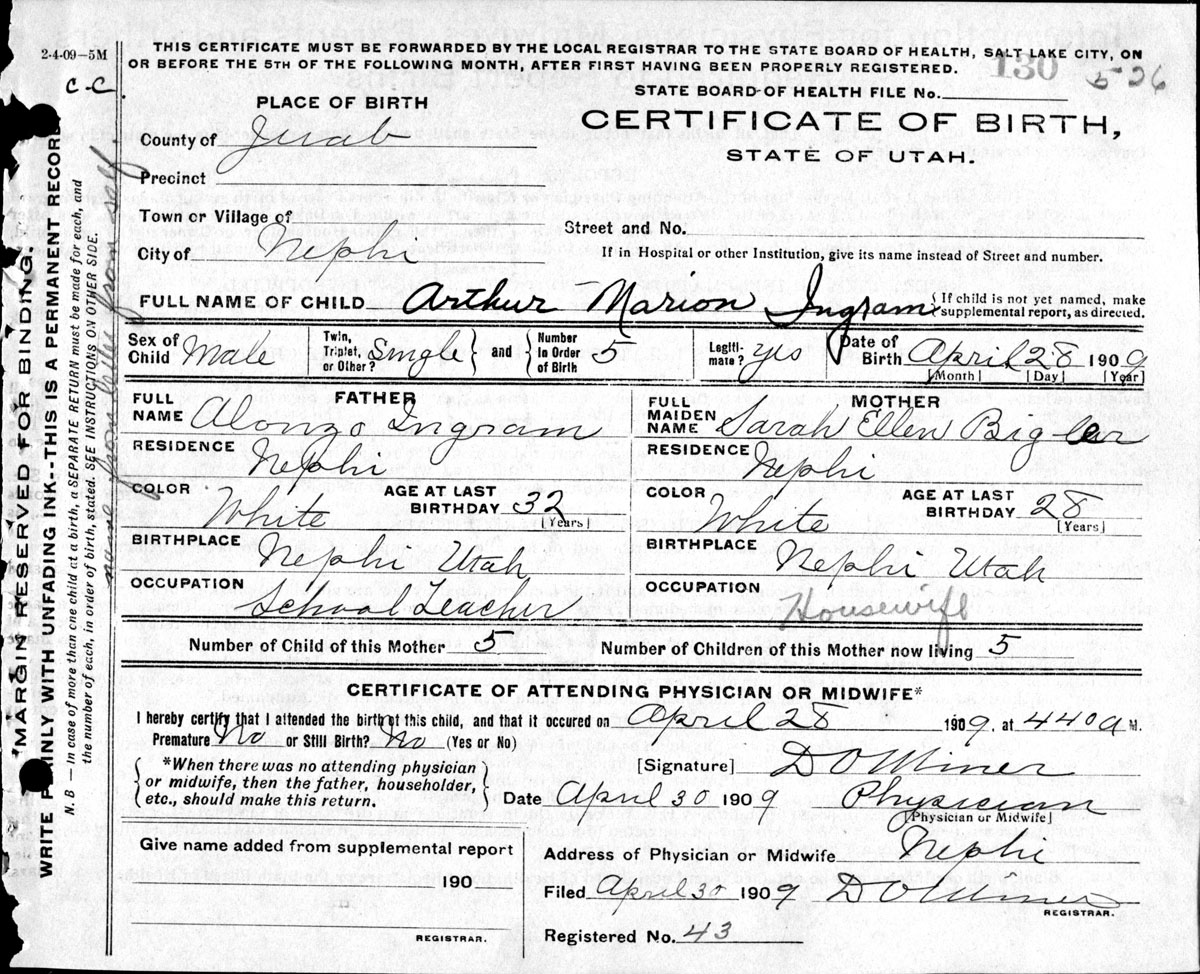 2-4-09-5M
THIS CERTIFICATE MUST BE FORWARDED BY THE LOCAL REGISTRAR TO THE STATE BOARD OF HEALTH, SALT LAKE CITY, ON
OR BEFORE THE 5TH OF THE FOLLOWING MONTH, AFTER FIRST HAVING BEEN PROPERLY REGISTERED.
130 5-26
C-C
STATE BOARD OF HEALTH FILE No.
PLACE OF BIRTH
CERTIFICATE OF BIRTH,
STATE OF UTAH.
County of Juab
Precinct
Town or Village of
Street and No.
City of Nephi
If in Hospital or other Institution, give its name instead of Street and number.
FULL NAME OF CHILD Arthur Marion Ingram { If child is not yet named, make supplemental report, as directed.
Sex of Child Male Twin, Triplet, or Other? Single } and { Number In Order of Birth 5 Legiti-mate? yes Date of Birth April 28 1909
[Month] [Day] [Year]
FATHER
FULL NAME Alonzo Ingram
RESIDENCE Nephi
COLOR White AGE AT LAST BIRTHDAY 32 [Years]
BIRTHPLACE Nephi Utah
OCCUPATION School Teacher
MOTHER
FULL MAIDEN NAME Sarah Ellen Bigler
RESIDENCE Nephi
COLOR White AGE AT LAST BIRTHDAY 28 [Years]
BIRTHPLACE Nephi Utah
OCCUPATION Housewife
Number of Child of this Mother 5 Number of Children of this Mother now living 5
CERTIFICATE OF ATTENDING PHYSICIAN OR MIDWIFE*
I hereby certify that I attended the birth of this child, and that it occured on April 28 1909, at 440 a M.
Premature No or Still Birth? No (Yes or No)
{ *When there was no attending physician
or midwife, then the father, householder,
etc., should make this return. }
[Signature] D O Miner
Date April 30 1909 Physician
[Physician or Midwife]
Give name added from supplemental report
190
REGISTRAR.
Address of Physician or Midwife Nephi
Filed April 30 1909 D O Miner
REGISTRAR.
Registered No. 43
MARGIN RESERVED FOR BINDING.
WRITE PLAINLY WITH UNFADING INK--THIS IS A PERMANENT RECORD.
N. B — In case of more than one child at a birth, a SEPARATE RETURN must be made for each, and
the number of each, in order of birth, stated. SEE INSTRUCTIONS ON OTHER SIDE.
name from letter from